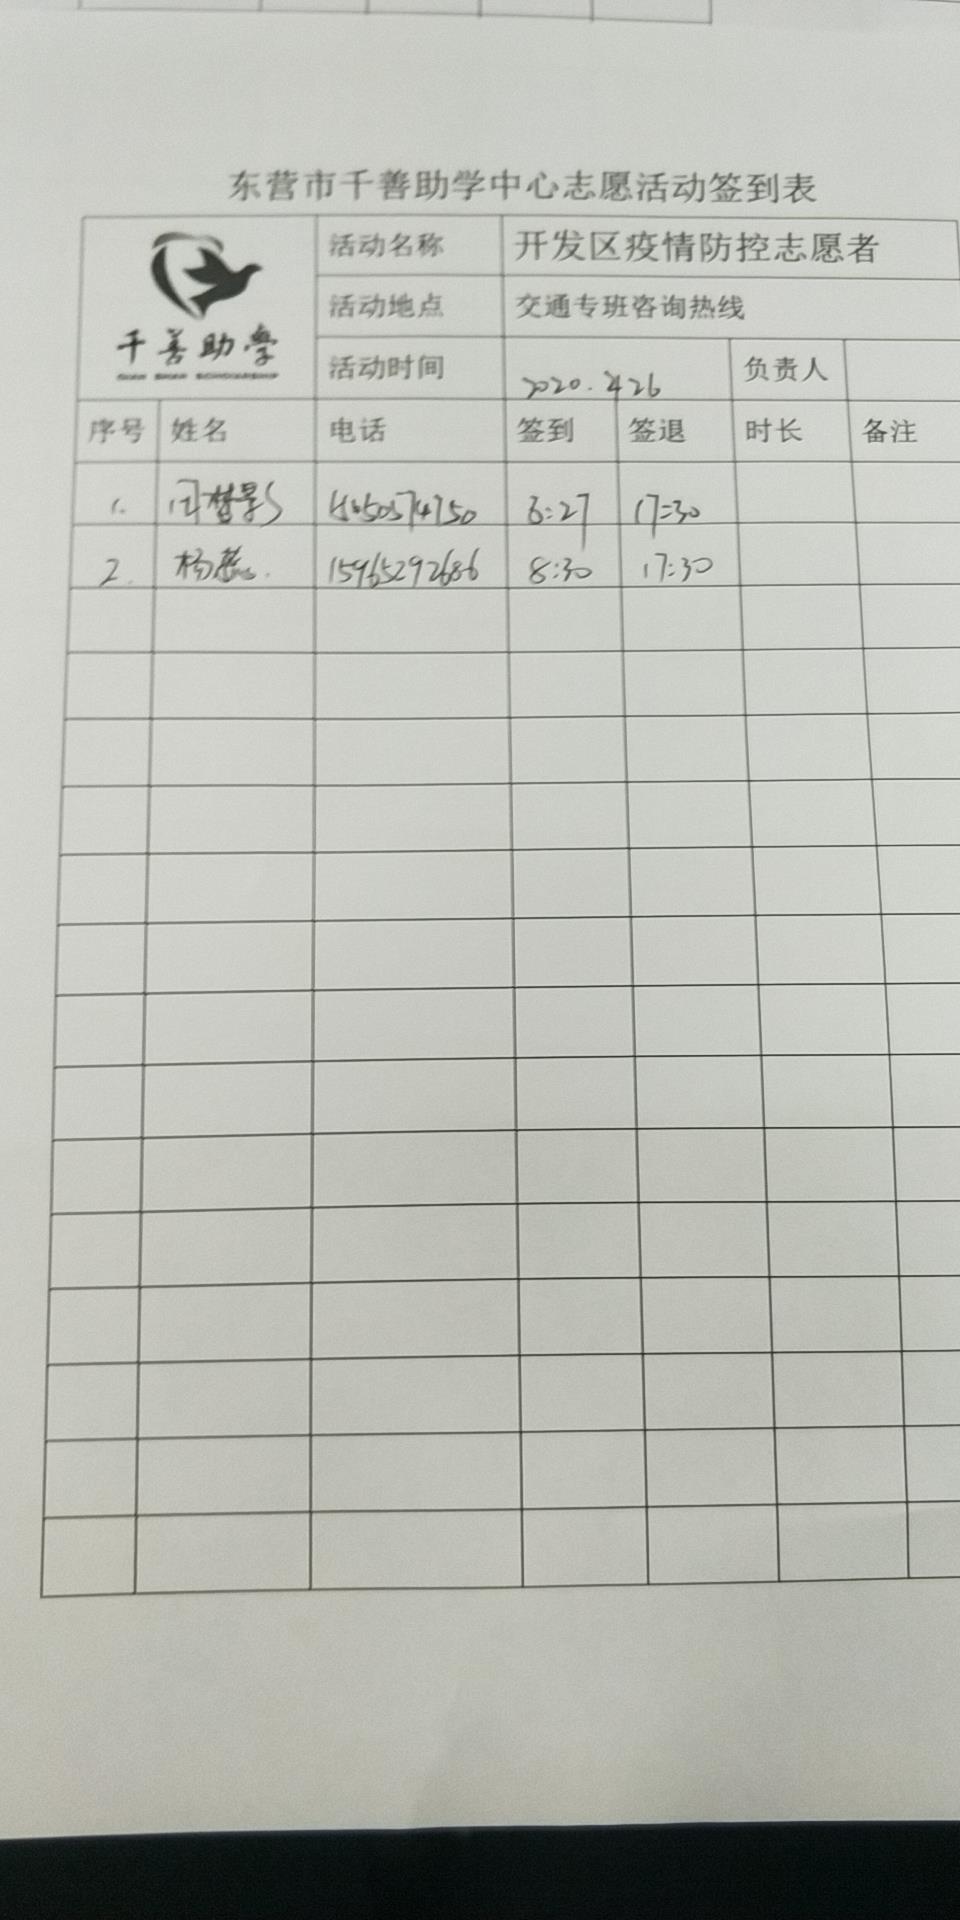 东营市千善助学中心志愿活动签到表
千善助学
活动名称 开发区疫情防控志愿者
活动地点 交通专班咨询热线
活动时间 2020. 26 负责人
序号 姓名 电话 签到 签退 时长 备注
1. 17:30
2. 杨 15965292686 8:30 17:30